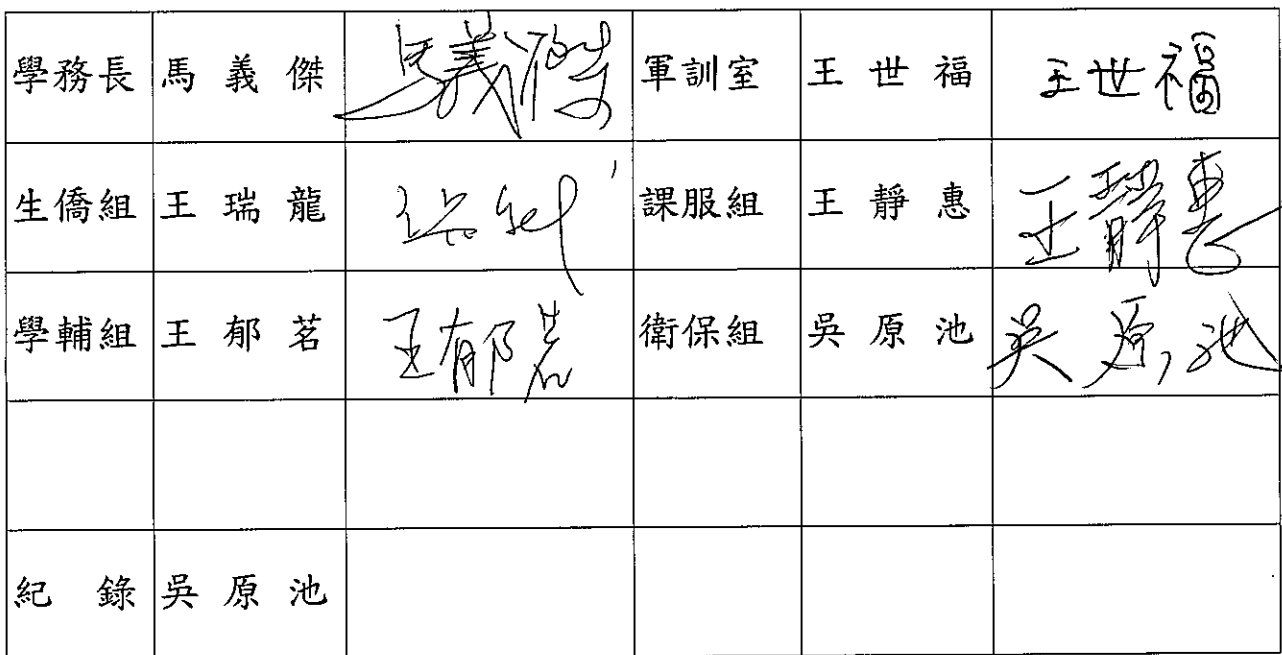 學務長 馬義傑 馬義傑 軍訓室 王世福 王世福
生僑組 王瑞龍 課服組 王靜惠 王靜惠
學輔組 王郁茗 王郁茗 衛保組 吳原池 吳原池
紀錄 吳原池